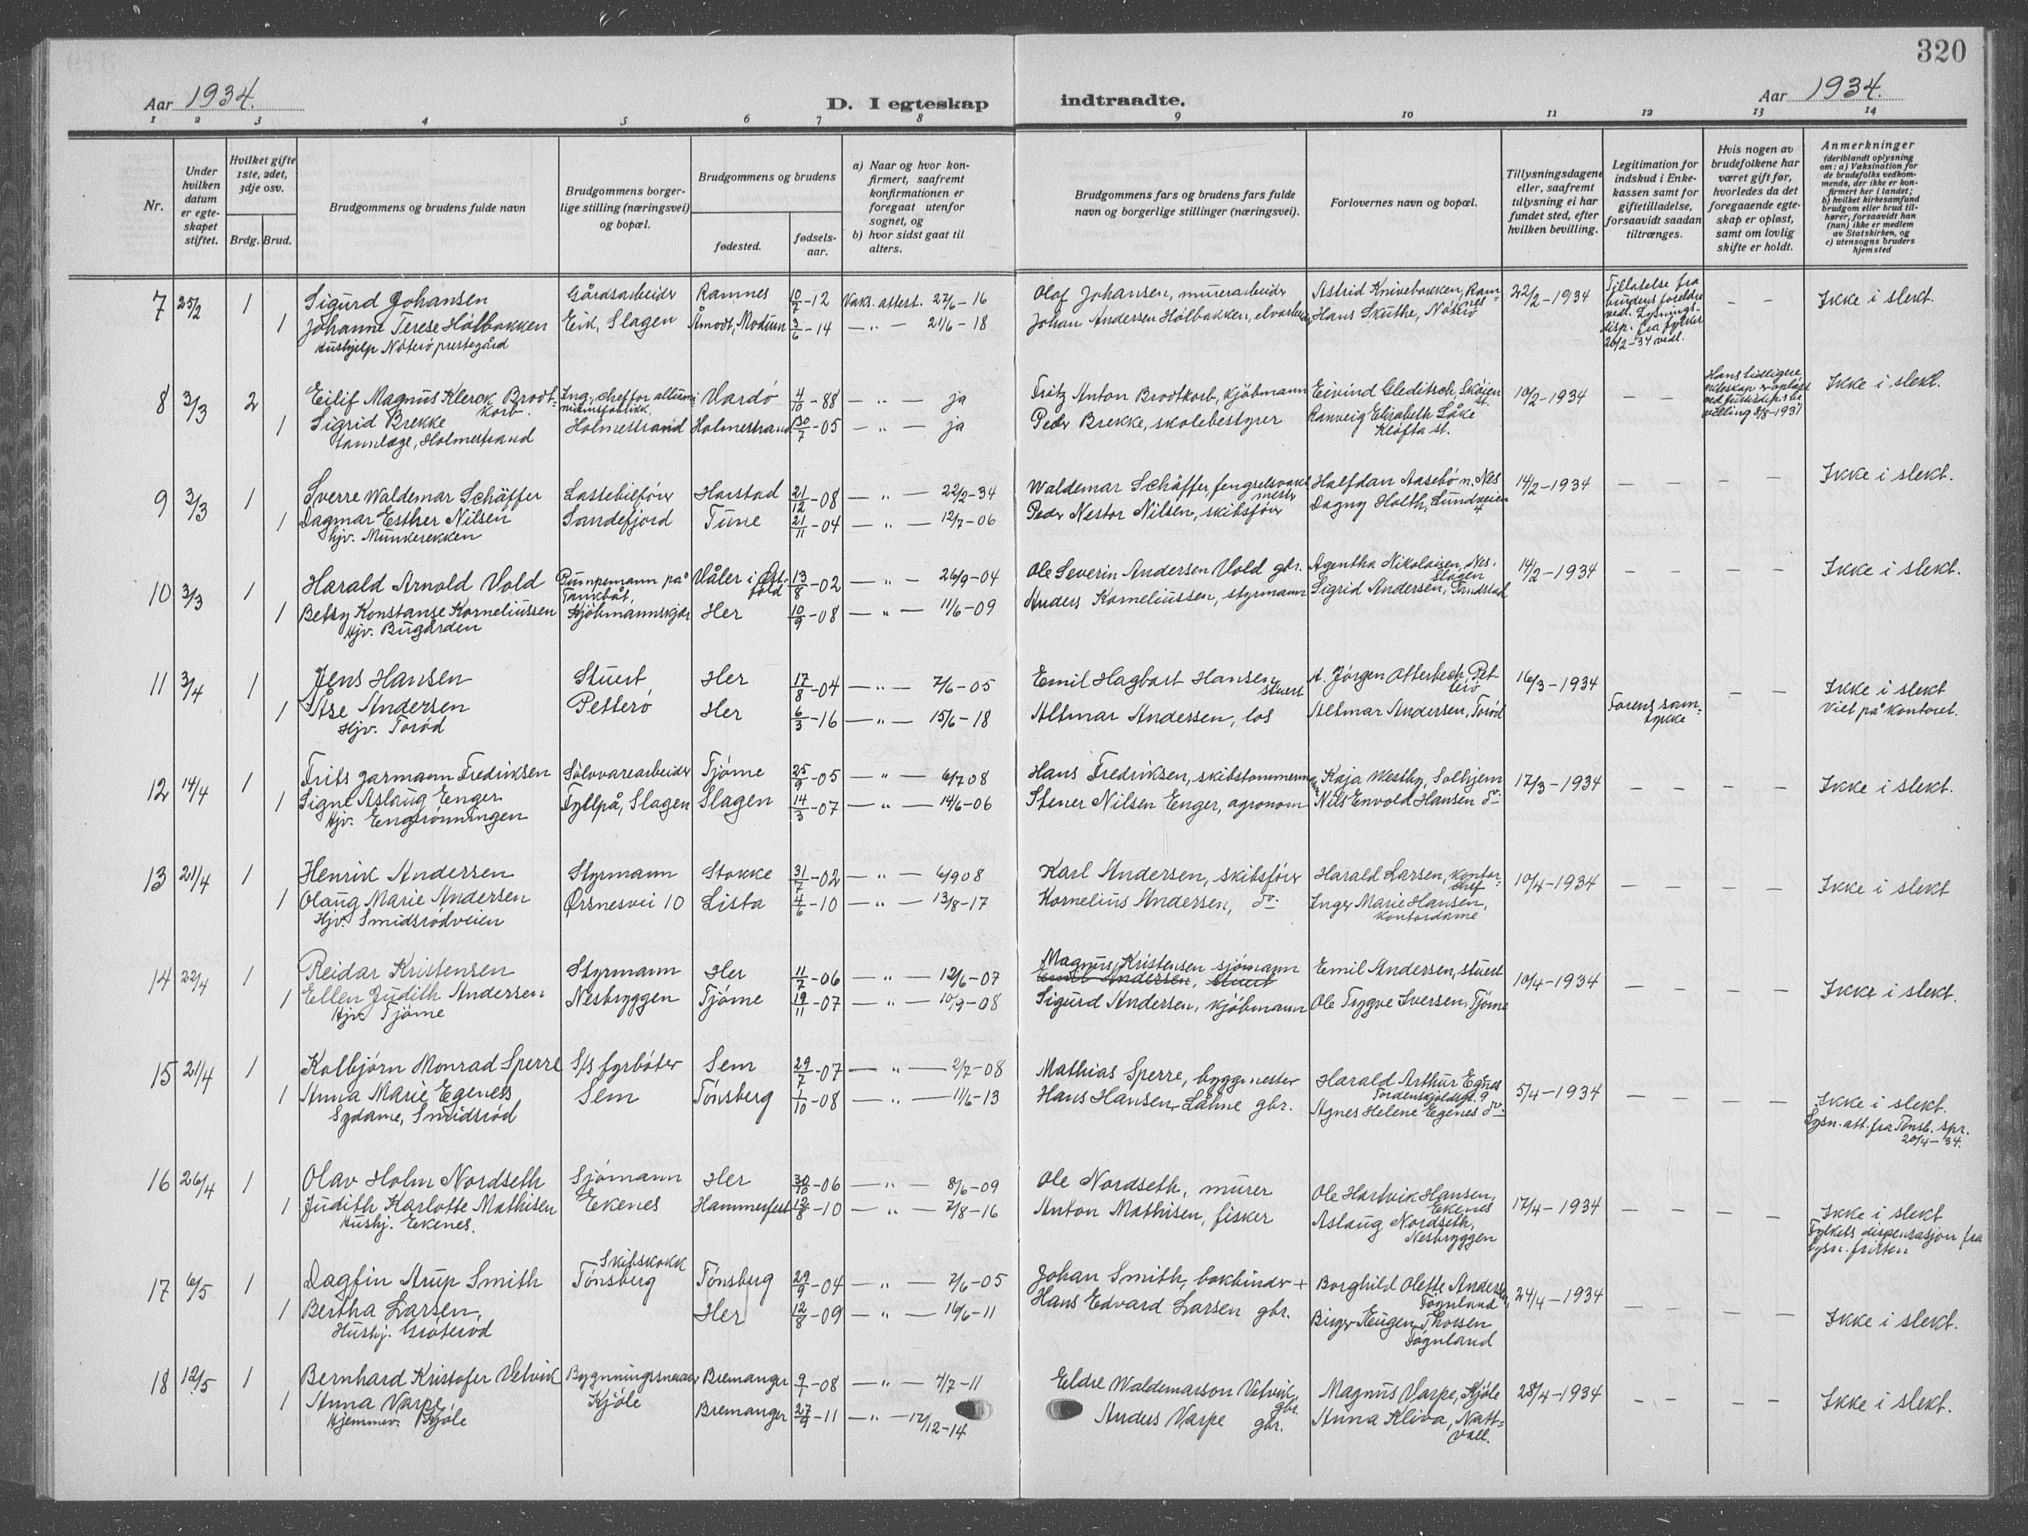 320
Aar 1934.
D. I egteskap indtraadte.
Aar 1934.
1 2 3 4 5 6 7 8 9 10 11 12 13 14
Nr.
Under hvilken datum er egteskapet stiftet.
Hvilket gifte 1ste, 2det, 3dje osv.
Brdg. Brud.
Brudgommens og brudens fulde navn
Brudgommens borgerlige stilling (næringsvei) og bopæl.
Brudgommens og brudens
fødested.
fødselsaar.
a) Naar og hvor konfirmert, saafremt konfirmationen er foregaat utenfor sognet, og
b) hvor sidst gaat til alters.
Brudgommens fars og brudens fars fulde navn og borgerlige stillinger (næringsvei).
Forlovernes navn og bopæl.
Tillysningsdagene eller, saafremt tillysning ei har fundet sted, efter hvilken bevilling.
Legitimation for indskud i Enkekassen samt for giftetilladelse, forsaavidt saadan tiltrænges.
Hvis nogen av brudefolkene har været gift før, hvorledes da det foregaaende egteskap er opløst, samt om lovlig skifte er holdt.
Anmerkninger
(deriblandt oplysning om: a) Vaksination for de brudefolks vedkommende, der ikke er konfirmert her i landet; b) hvilket kirkesamfund brudgom eller brud tilhører, forsaavidt han (hun) ikke er medlem av Statskirken, og c) utensogns bruders hjemsted
7 25/2 1 Sigurd Johansen Gårdsarbeider Ramnes 10/7-12 Vaks. attest. 27/6-16 Olaf Johansen, murerarbeider Astrid Knivebakken, Ramnes 22/2-1934 Tillatelse fra brudens foreldre vedl. Lysningsdisp. fra fylket 20/2-34 vedl. — — Ikke i slekt.
1 Johanne Terese Hølbakken Eik, Slagen Åmodt, Modum 3/6-14 — „ — 21/6-18 Johan Andersen Hølbakken, elvarbeider Hans Skuthe, Nøterø
Hushjelp Nøterø prestegård
8 3/3 2 Eilif Magnus Klerck Brodtkorb Ing., chef for alluminiumsfabrikk Vardø 4/10-88 — „ — ja Fritz Anton Brodtkorb, kjøbmann Eivind Gleditsch, Skøien st. 10/2-1934 — — Hans tidligere ekteskap er opløst ved fylkesdisp.s bevilling 8/8-1931 Ikke i slekt.
1 Sigrid Brekke Holmestrand Holmestrand 30/7-05 — „ — ja Peder Brekke, skolebestyrer Ranveig Elisabeth Låke
tannlæge, Holmestrand Kløfta st.
9 3/3 1 Sverre Waldemar Schäffer Lastebilfører Harstad 21/12-08 — „ — 22/2-34 Waldemar Schäffer, fengselsvaktmester Halfdan Aasebø n. Nes 14/2-1934 — — — — Ikke i slekt.
1 Dagmar Esther Nilsen Sandefjord Tune 21/11-04 — „ — 12/7-06 Peder Nestor Nilsen, skibsfører Dagny Holth, Lundveien 4
hjv. Munkerekken
10 3/3 1 Harald Arnold Vold Pumpemann på Tankbåt, Våler i Østfold 13/8-02 — „ — 26/9-04 Ole Severin Andersen Vold gbr. Agentha Nikolaisen, Nes. Slagen 14/2-1934 — — — — Ikke i slekt.
1 Betsy Konstanse Korneliussen Kjøbmannskjær Her 10/9-08 — „ — 11/6-09 Anders Korneliussen, styrmann Sigrid Andersen, Sandstad
Hjv. Bugården
11 3/4 1 Jens Hansen Stuert Her 17/8-04 — „ — 7/6-05 Emil Hagbart Hansen stuert A. Jørgen Otterbech Petterø 16/3-1934 — — Ikke i slekt
1 Åse Andersen Petterø Her 6/3-16 — „ — 15/6-18 Altmar Andersen, los Altmar Andersen, Torød Farens samtykke Viet på kontoret.
Hjv. Torød
12 14/4 1 Frits Garmann Fredriksen Sølvvarearbeider Tjøme 25/9-05 — „ — 6/7 08 Hans Fredriksen, skibstømmermann Kaja Westby, Solhjem 17/3-1934 — — — — Ikke i slekt.
1 Signe Aslaug Enger Fyllpå, Slagen Slagen 14/3-07 — „ — 14/6-06 Stener Nilsen Enger, agronom Nils Envold Hansen do.
Hjv. Engerønningen
13 21/4 1 Henrik Andersen Styrmann Stokke 31/7-02 — „ — 6/9 08 Karl Andersen, skibsfører Harald Larsen, kontorchef 10/4-1934 — — — — Ikke i slekt
1 Olaug Marie Andersen Ørsnesvei 10 Lista 4/6-10 — „ — 13/8-17 Kornelius Andersen, do. Inger Marie Hansen, kontordame
Hjv. Smidsrødveien
14 22/4 1 Reidar Kristensen Styrmann Her 11/7-06 — „ — 12/6-07 Magnus Kristensen sjømann Emil Andersen, stuert Emil Andersen, stuert 10/4-1934 — — — — Ikke i slekt.
1 Ellen Judith Andersen Nesbryggen Tjøme 19/11-07 — „ — 10/9-08 Sigurd Andersen, kjøbmann Ole Trygve Iversen, Tjøme
Hjv. Tjøme
15 21/4 1 Kolbjørn Monrad Sperre S/S fyrbøter Sem 29/7-07 — „ — 2/7-08 Mathias Sperre, byggmester Harald Arthur Egenes Tordenskjoldsgt. 9 5/4-1934 — — — — Ikke i slekt.
1 Anna Marie Egeness Sem Tønsberg 1/10-08 — „ — 11/6-13 Hans Hansen Låhne gbr. Agnes Helene Egenes do. Lysn. att. fra Tønsb. spr. 20/4-34.
Sydame, Smidsrød
16 26/4 1 Olav Holm Nordseth Sjømann Her 30/10-06 — „ — 8/6-09 Ole Nordseth, murer Ole Hartvik Hansen, Ekenes 17/4-1934 — — — — Ikke i slekt
1 Judith Karlotte Mathisen Ekenes Hammerfest 12/8-10 — „ — 7/8-16 Anton Mathisen, fisker Aslaug Nordseth, Nesbryggen Fylkets dispensasjon fra lysn. fristen
Hushj. Ekenes.
17 6/5 1 Dagfin Arup Smith Skibskokk Tønsberg Tønsberg 29/9-04 — „ — 7/6-05 Johan Smith, bokbinder + Borghild Olette Andersen, Føgnland 24/4-1934 — — — — Ikke i slekt.
1 Bertha Larsen, Her 12/8-09 — „ — 16/6-11 Hans Edvard Larsen gbr. Birger Eugen Thorsen Føgnland
Hushj. Grøterød
18 12/5 1 Bernhard Kristofer Vetvik Bygningssnekker Bremanger 9/1-08 — „ — 4/7-11 Eldre Waldemarson Vetvik, gbr. Magnus Varpe, Kjøle 28/4-1934 — — — — Ikke i slekt.
1 Anna Varpe Kjøle Bremanger 27/9-11 — „ — 17/12-14 Anders Varpe gbr. Anna Kliva, Nattvall.
Hjemmev. Kjøle